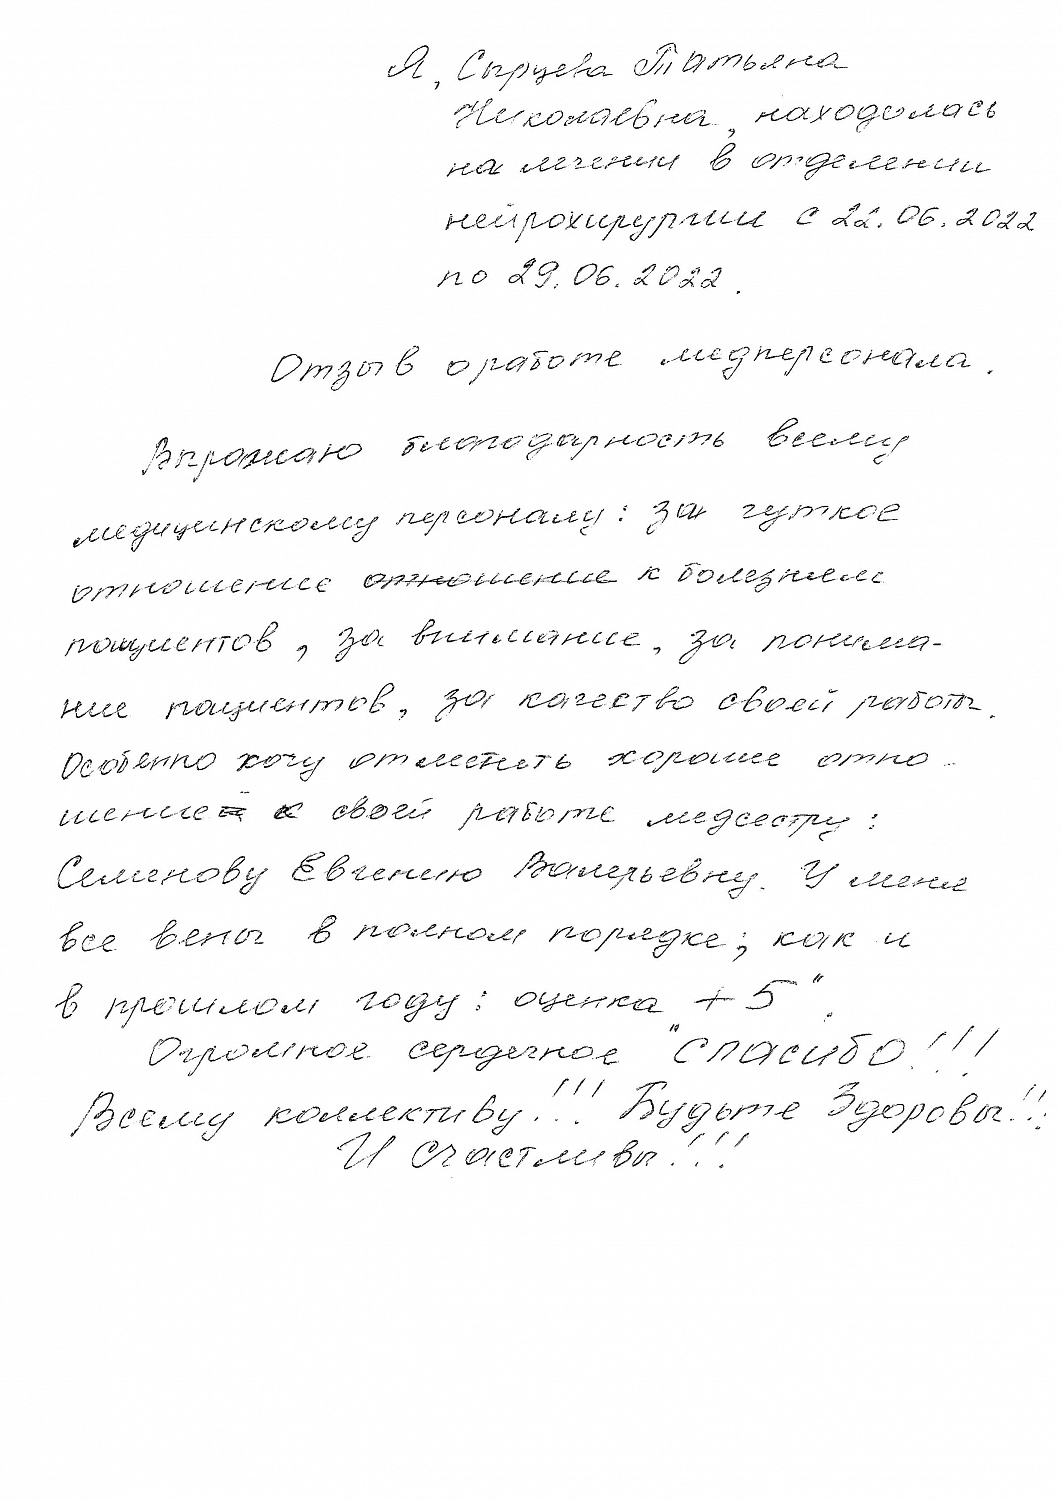 Я, Сырцева Татьяна
Николаевна, находилась
на лечении в отделении
нейрохирургии с 22.06.2022
по 29.06.2022.
Отзыв о работе медперсонала.
Выражаю благодарность всему
медицинскому персоналу: за чуткое
отношение отношение к болезням
пациентов, за внимание, за понима-
ние пациентов, за качество своей работы.
Особенно хочу отметить хорошее отно-
шение к своей работе медсестру:
Семенову Евгению Валерьевну. У меня
все вены в полном порядке; как и
в прошлом году: оценка +5".
Огромное сердечное "Спасибо!!!
Всему коллективу!!! Будьте Здоровы!!!
И Счастливы!!!